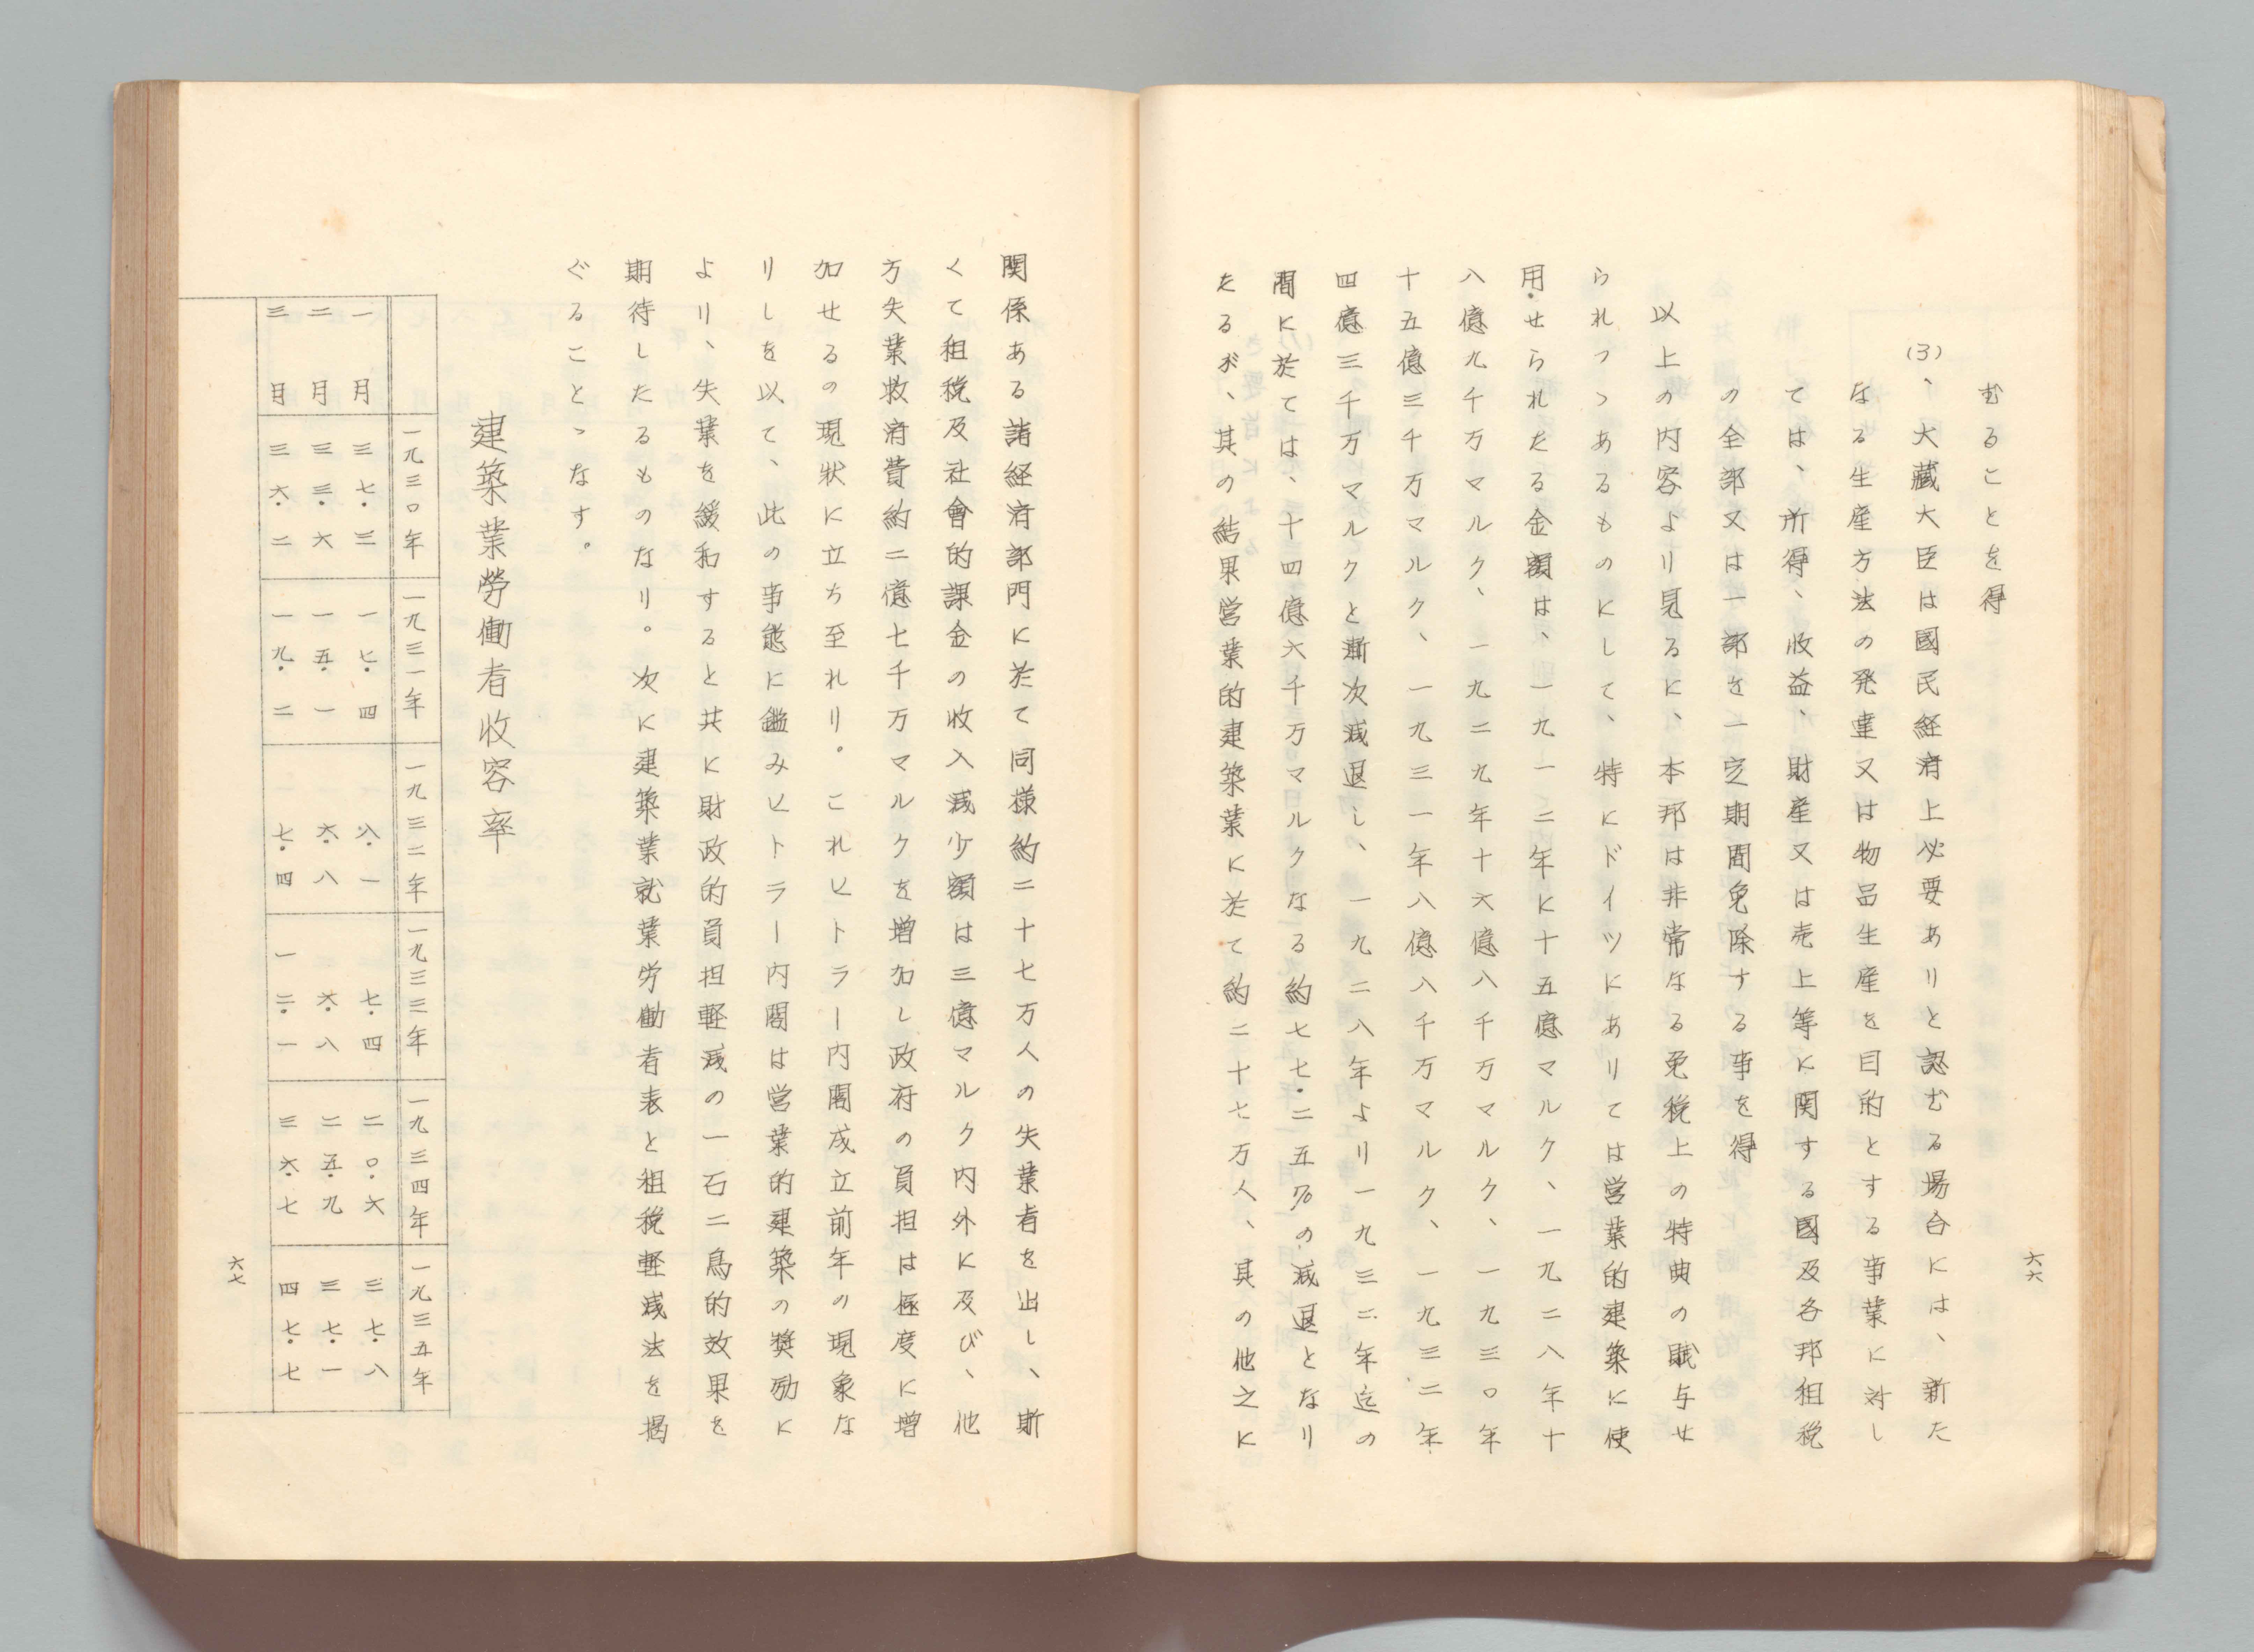 六六
むることを得
(3)、大藏大臣は國民経済上必要ありと認むる場合には、新た
なる生産方法の発達又は物品生産を目的とする事業に対し
ては、所得、收益、財産又は売上等に関する國及各邦租税
の全部又は一部を一定期間免除する事を得
以上の内容より見るに、本邦は非常なる免税上の特典の賦与せ
られつゝあるものにして、特にドイツにありては営業的建築に使
用せられたる金額は、一九一二年に十五億マルク、一九二八年十
八億九千万マルク、一九二九年十六億八千万マルク、一九三〇年
十五億三千万マルク、一九三一年八億八千万マルク、一九三二年
四億三千万マルクと漸次減退し、一九二八年より一九三二年迄の
間に於ては、十四億六千万マルクなる約七七・二五%の減退となり
たるが、其の結果営業的建築業に於て約二十七万人、其の他之に
関係ある諸経済部門に於て同様約二十七万人の失業者を出し、斯
くて租税及社會的課金の收入減少額は三億マルク内外に及び、他
方失業救済費約二億七千万マルクを増加し政府の負担は極度に増
加せるの現状に立ち至れり。これヒトラー内閣成立前年の現象な
りしを以て、此の事態に鑑みヒトラー内閣は営業的建築の奬励に
より、失業を緩和すると共に財政的負担軽減の一石二鳥的效果を
期待したるものなり。次に建築業就業労働者表と租税軽減法を掲
ぐることゝなす。
建築業勞働者收容率
一九三〇年 一九三一年 一九三二年 一九三三年 一九三四年 一九三五年
一月 三七・三 一七・四 八・一 七・四 二〇・六 三七・八
二月 三三・六 一五・一 六・八 六・八 二五・九 三七・一
三月 三六・二 一九・二 七・四 一二・一 三六・七 四七・七
六七